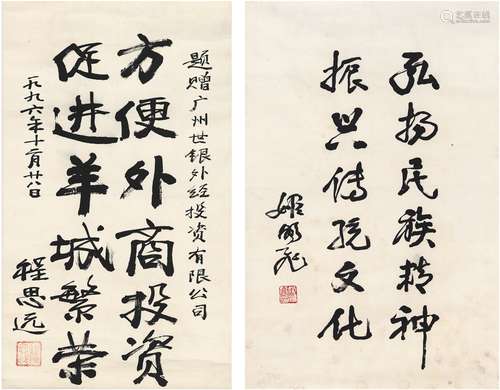 题赠广州世银外经投资有限公司
方便外商投资
促进羊城繁荣
一九九六年十二月廿八日
程思远
弘扬民族精神
振兴传统文化
姬鹏飞